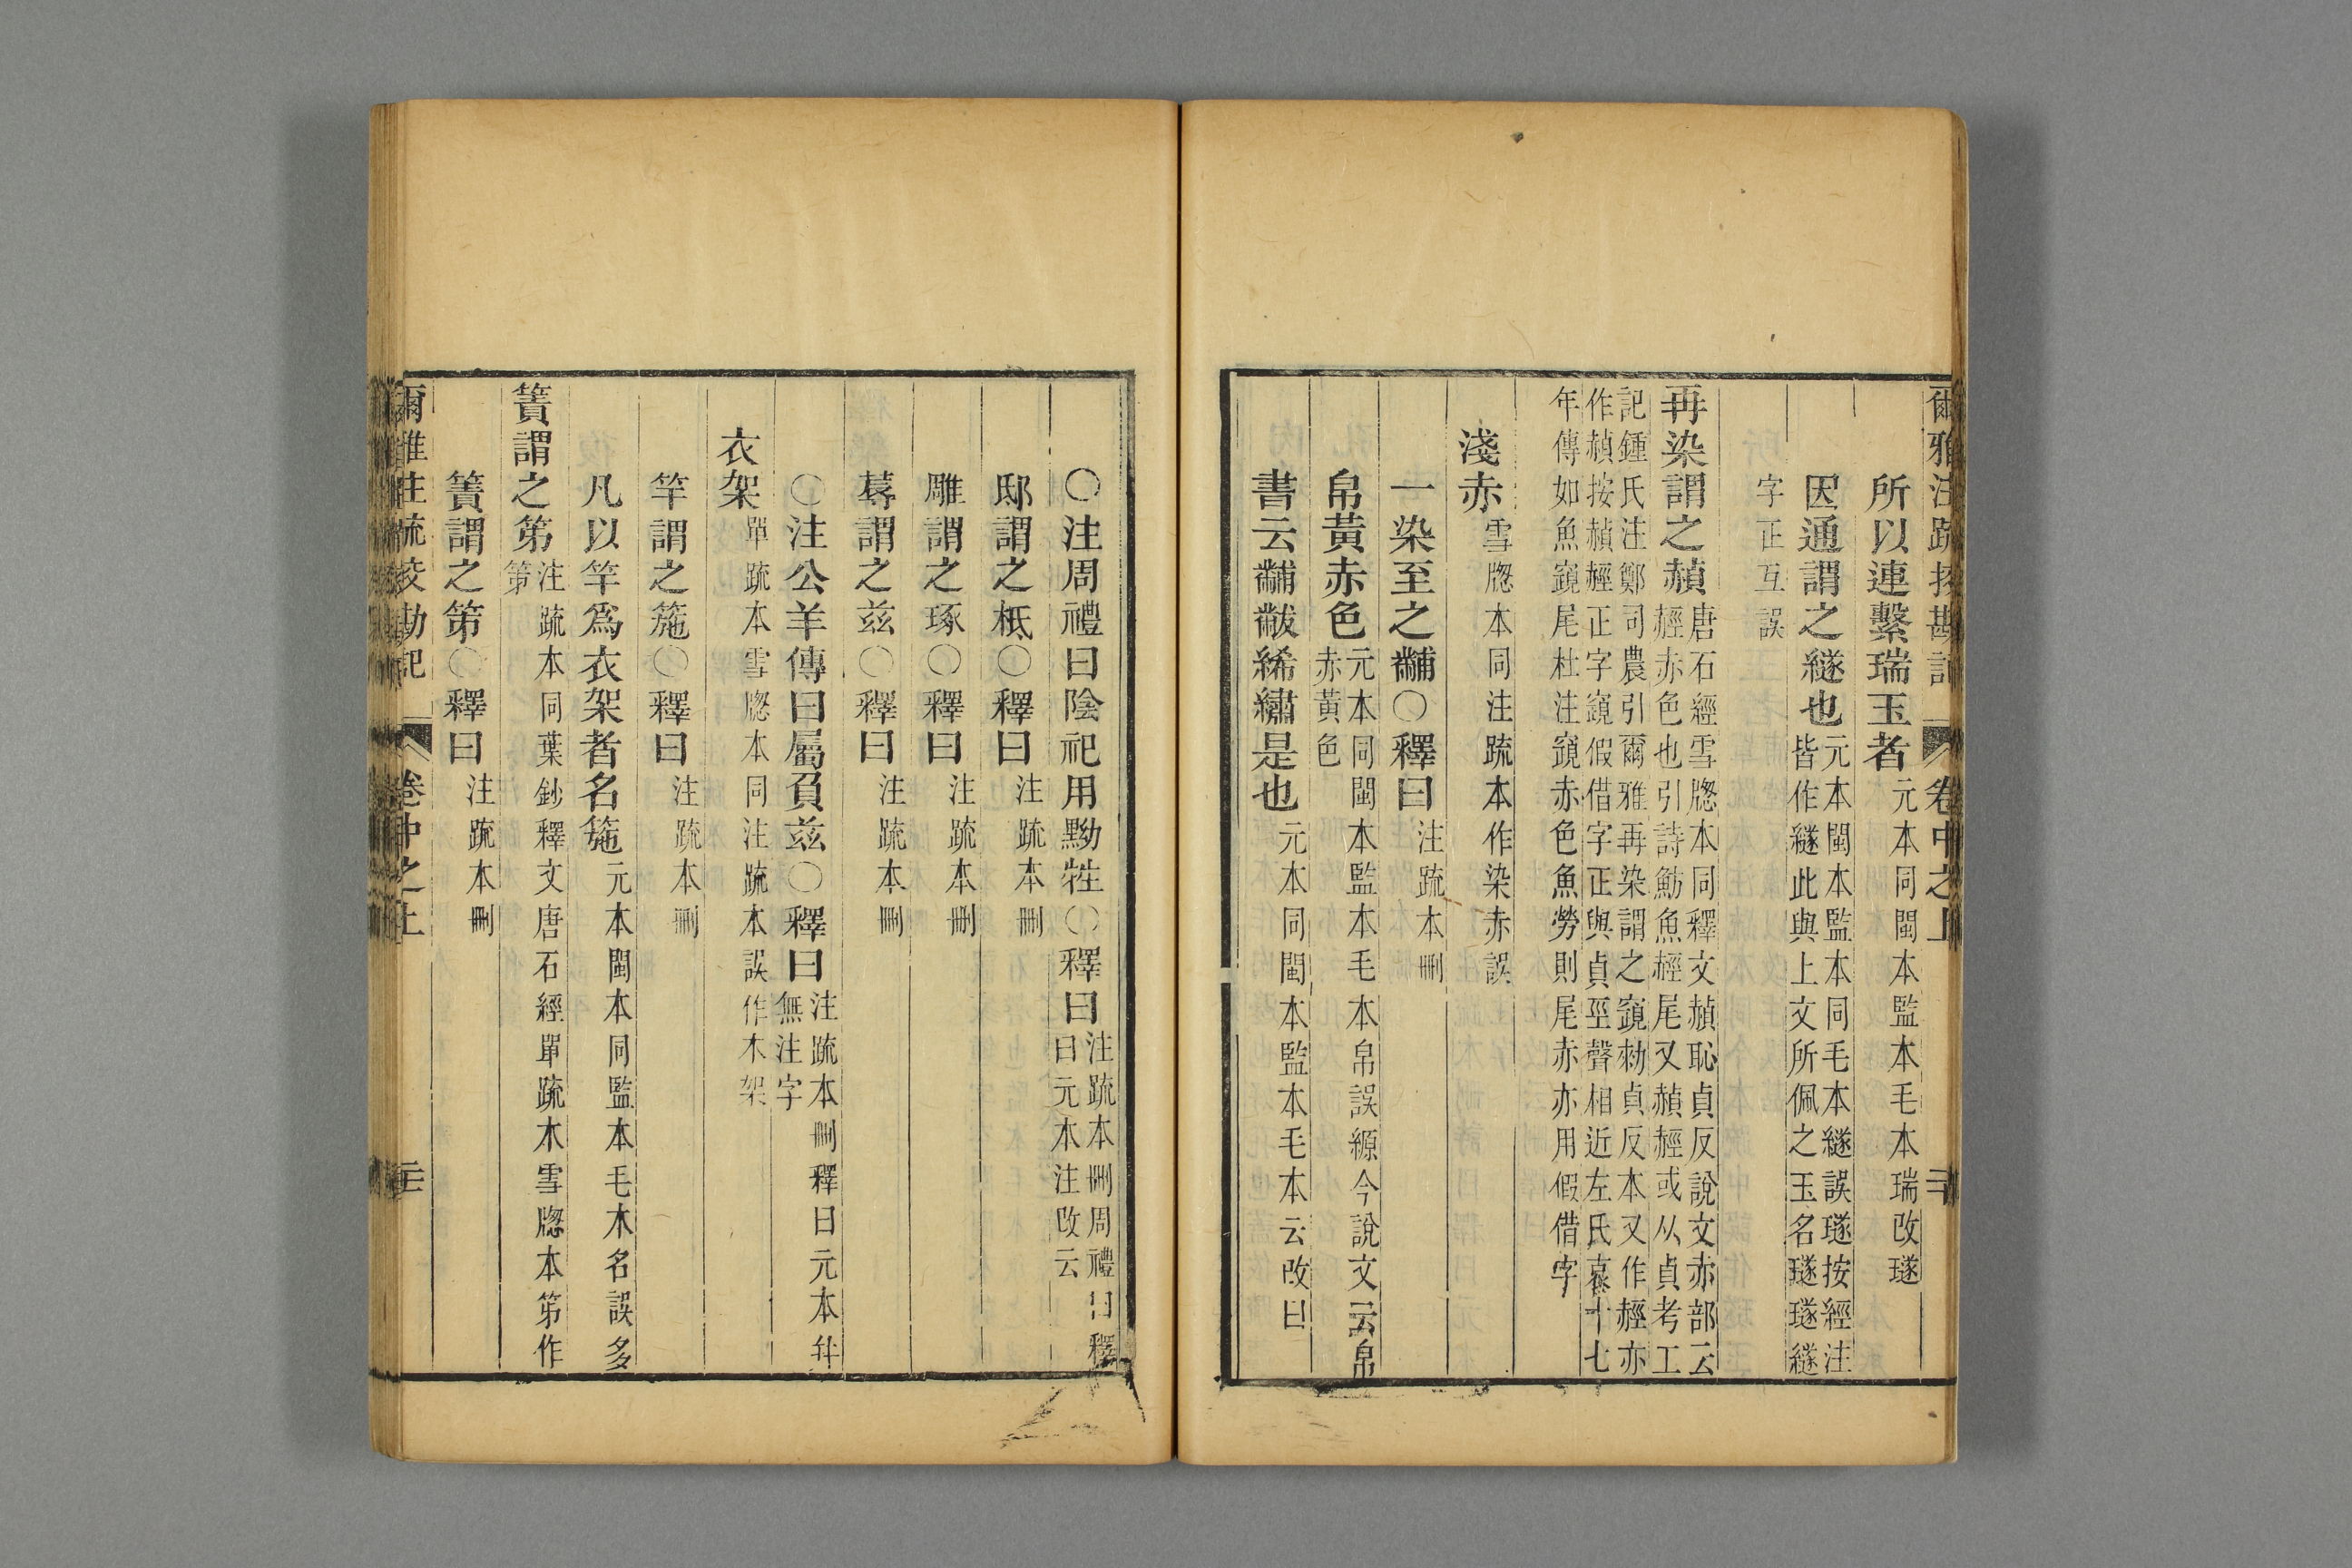 爾雅注疏挍勘記 卷中之上 二十
所以連繫瑞玉者元本同閩本監本毛本瑞改璲
因通謂之繸也元本閩本監本同毛本繸誤璲按經注
皆作繸此與上文所佩之玉名璲璲繸
字正互誤
再染謂之赬唐石經雪牕本同釋文赬恥貞反說文赤部云
䞓赤色也引詩魴魚䞓尾又赬䞓或从貞考工
記鍾氏注鄭司農引爾雅再染謂之竀勑貞反本又作䞓亦
作赬按赬䞓正字竀假借字正與貞巠聲相近左氏哀十七
年傳如魚竀尾杜注竀赤色魚勞則尾赤亦用假借字
淺赤雪牕本同注疏本作染赤誤
一染至之黼○釋曰注疏本刪
帛黃赤色元本同閩本監本毛本帛誤縓今說文云帛
赤黃色
書云黼黻絺繡是也元本同閩本監本毛本云改曰
○注周禮曰陰祀用黝牲○釋曰注疏本刪周禮曰釋
曰元本注改云
邸謂之柢○釋曰注疏本刪
雕謂之琢○釋曰注疏本刪
蓐謂之兹○釋曰注疏本刪
○注公羊傳曰屬負兹○釋曰注疏本刪釋曰元本幷
無注字
衣架單疏本雪牕本同注疏本誤作木架
竿謂之箷○釋曰注疏本刪
凡以竿爲衣架者名箷元本閩本同監本毛本名誤多
簀謂之第注疏本同葉鈔釋文唐石經單疏本雪牕本第作
笫
簀謂之第○釋曰注疏本刪
爾雅注疏挍勘記 卷中之上